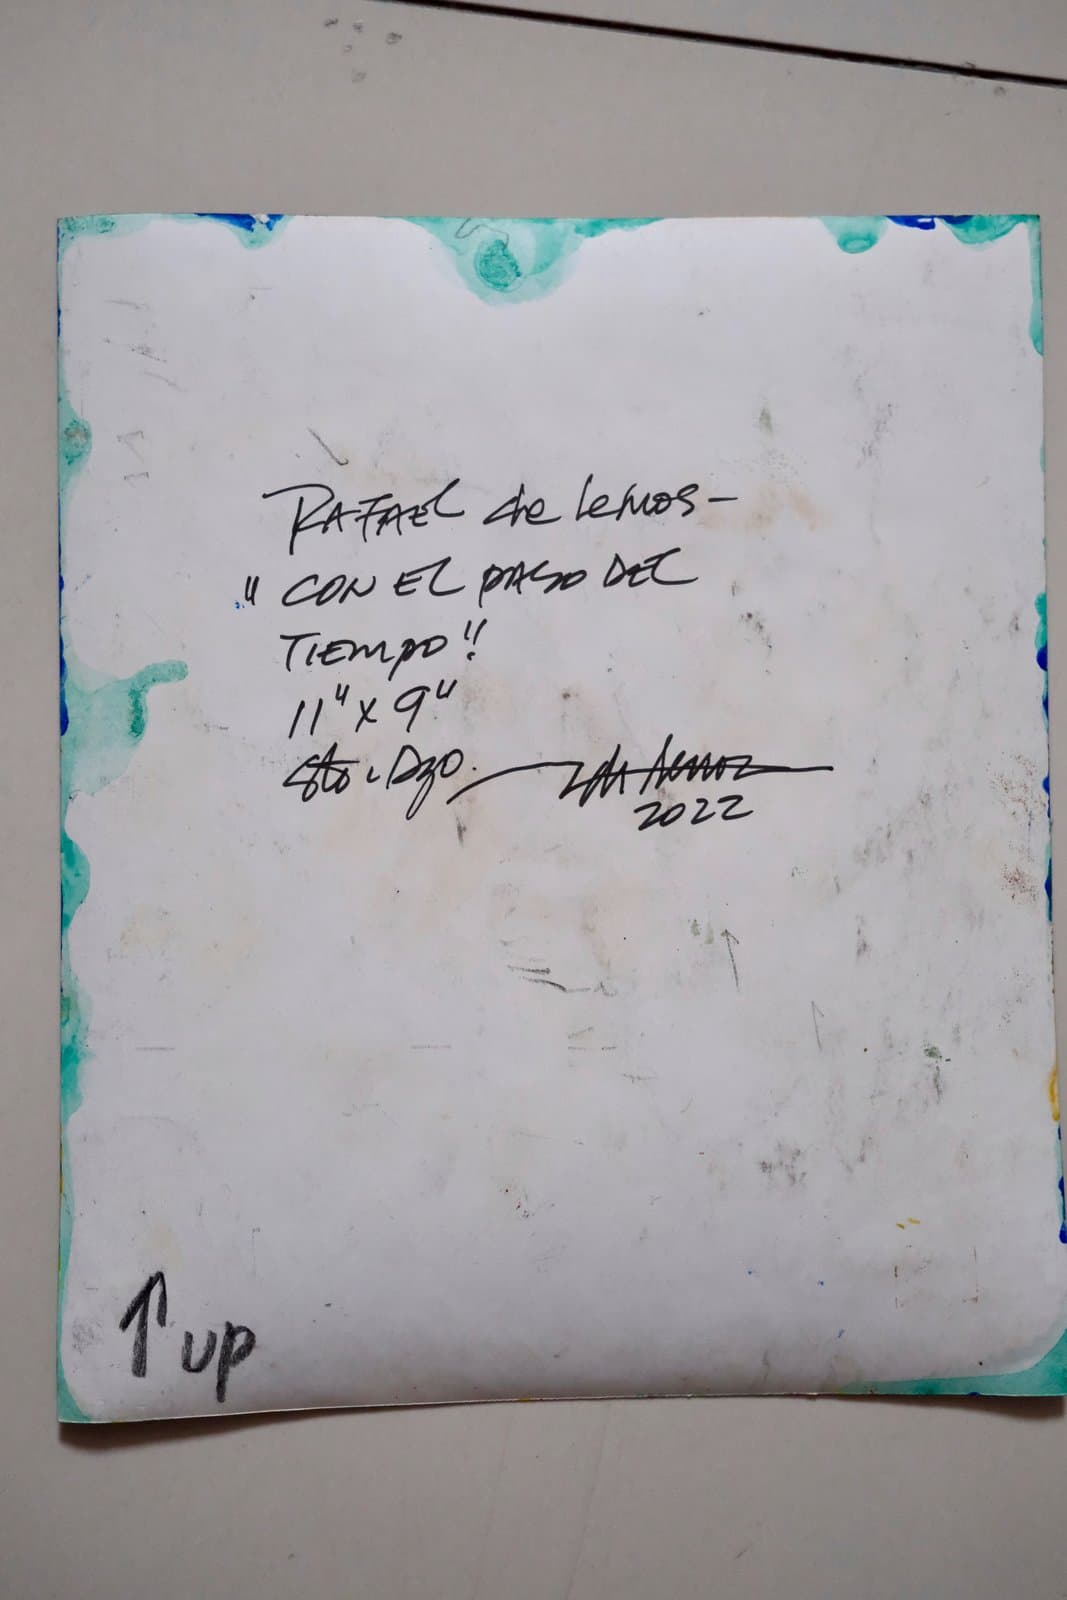 RAFAEL de lemos -
" CON EL PASO DEL
TIEMPO"
11" x 9"
Sto. Dgo.
2022
↑ up